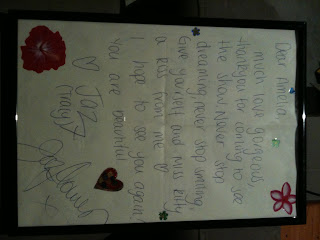 Dear Amelia
much love gorgeous,
thankyou for coming to see
the show. Never stop
dreaming, never stop smiling,
Give yourself and Miss Kitty
a kiss from me ♡
I hope to see you again!
you are beautiful
♡ Jaz